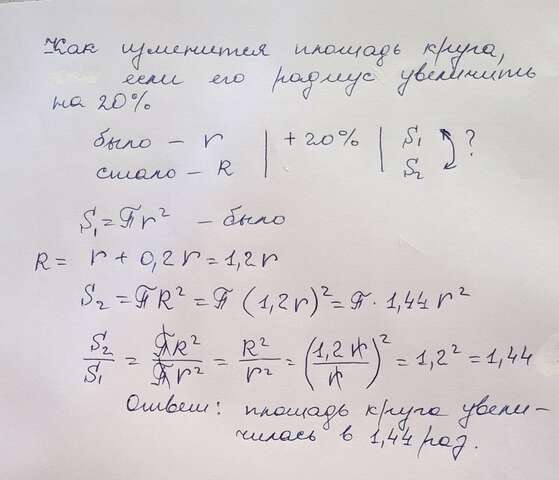 Как изменится площадь круга,
если его радиус увеличить
на 20%
было – r | + 20% | S₁ ?
стало – R S₂
S₁ = πr² – было
R = r + 0,2r = 1,2r
S₂ = πR² = π (1,2r)² = π · 1,44r²
S₂/S₁ = πR²/πr² = R²/r² = (1,2r/r)² = 1,2² = 1,44
Ответ: площадь круга увели-
чилась в 1,44 раз.